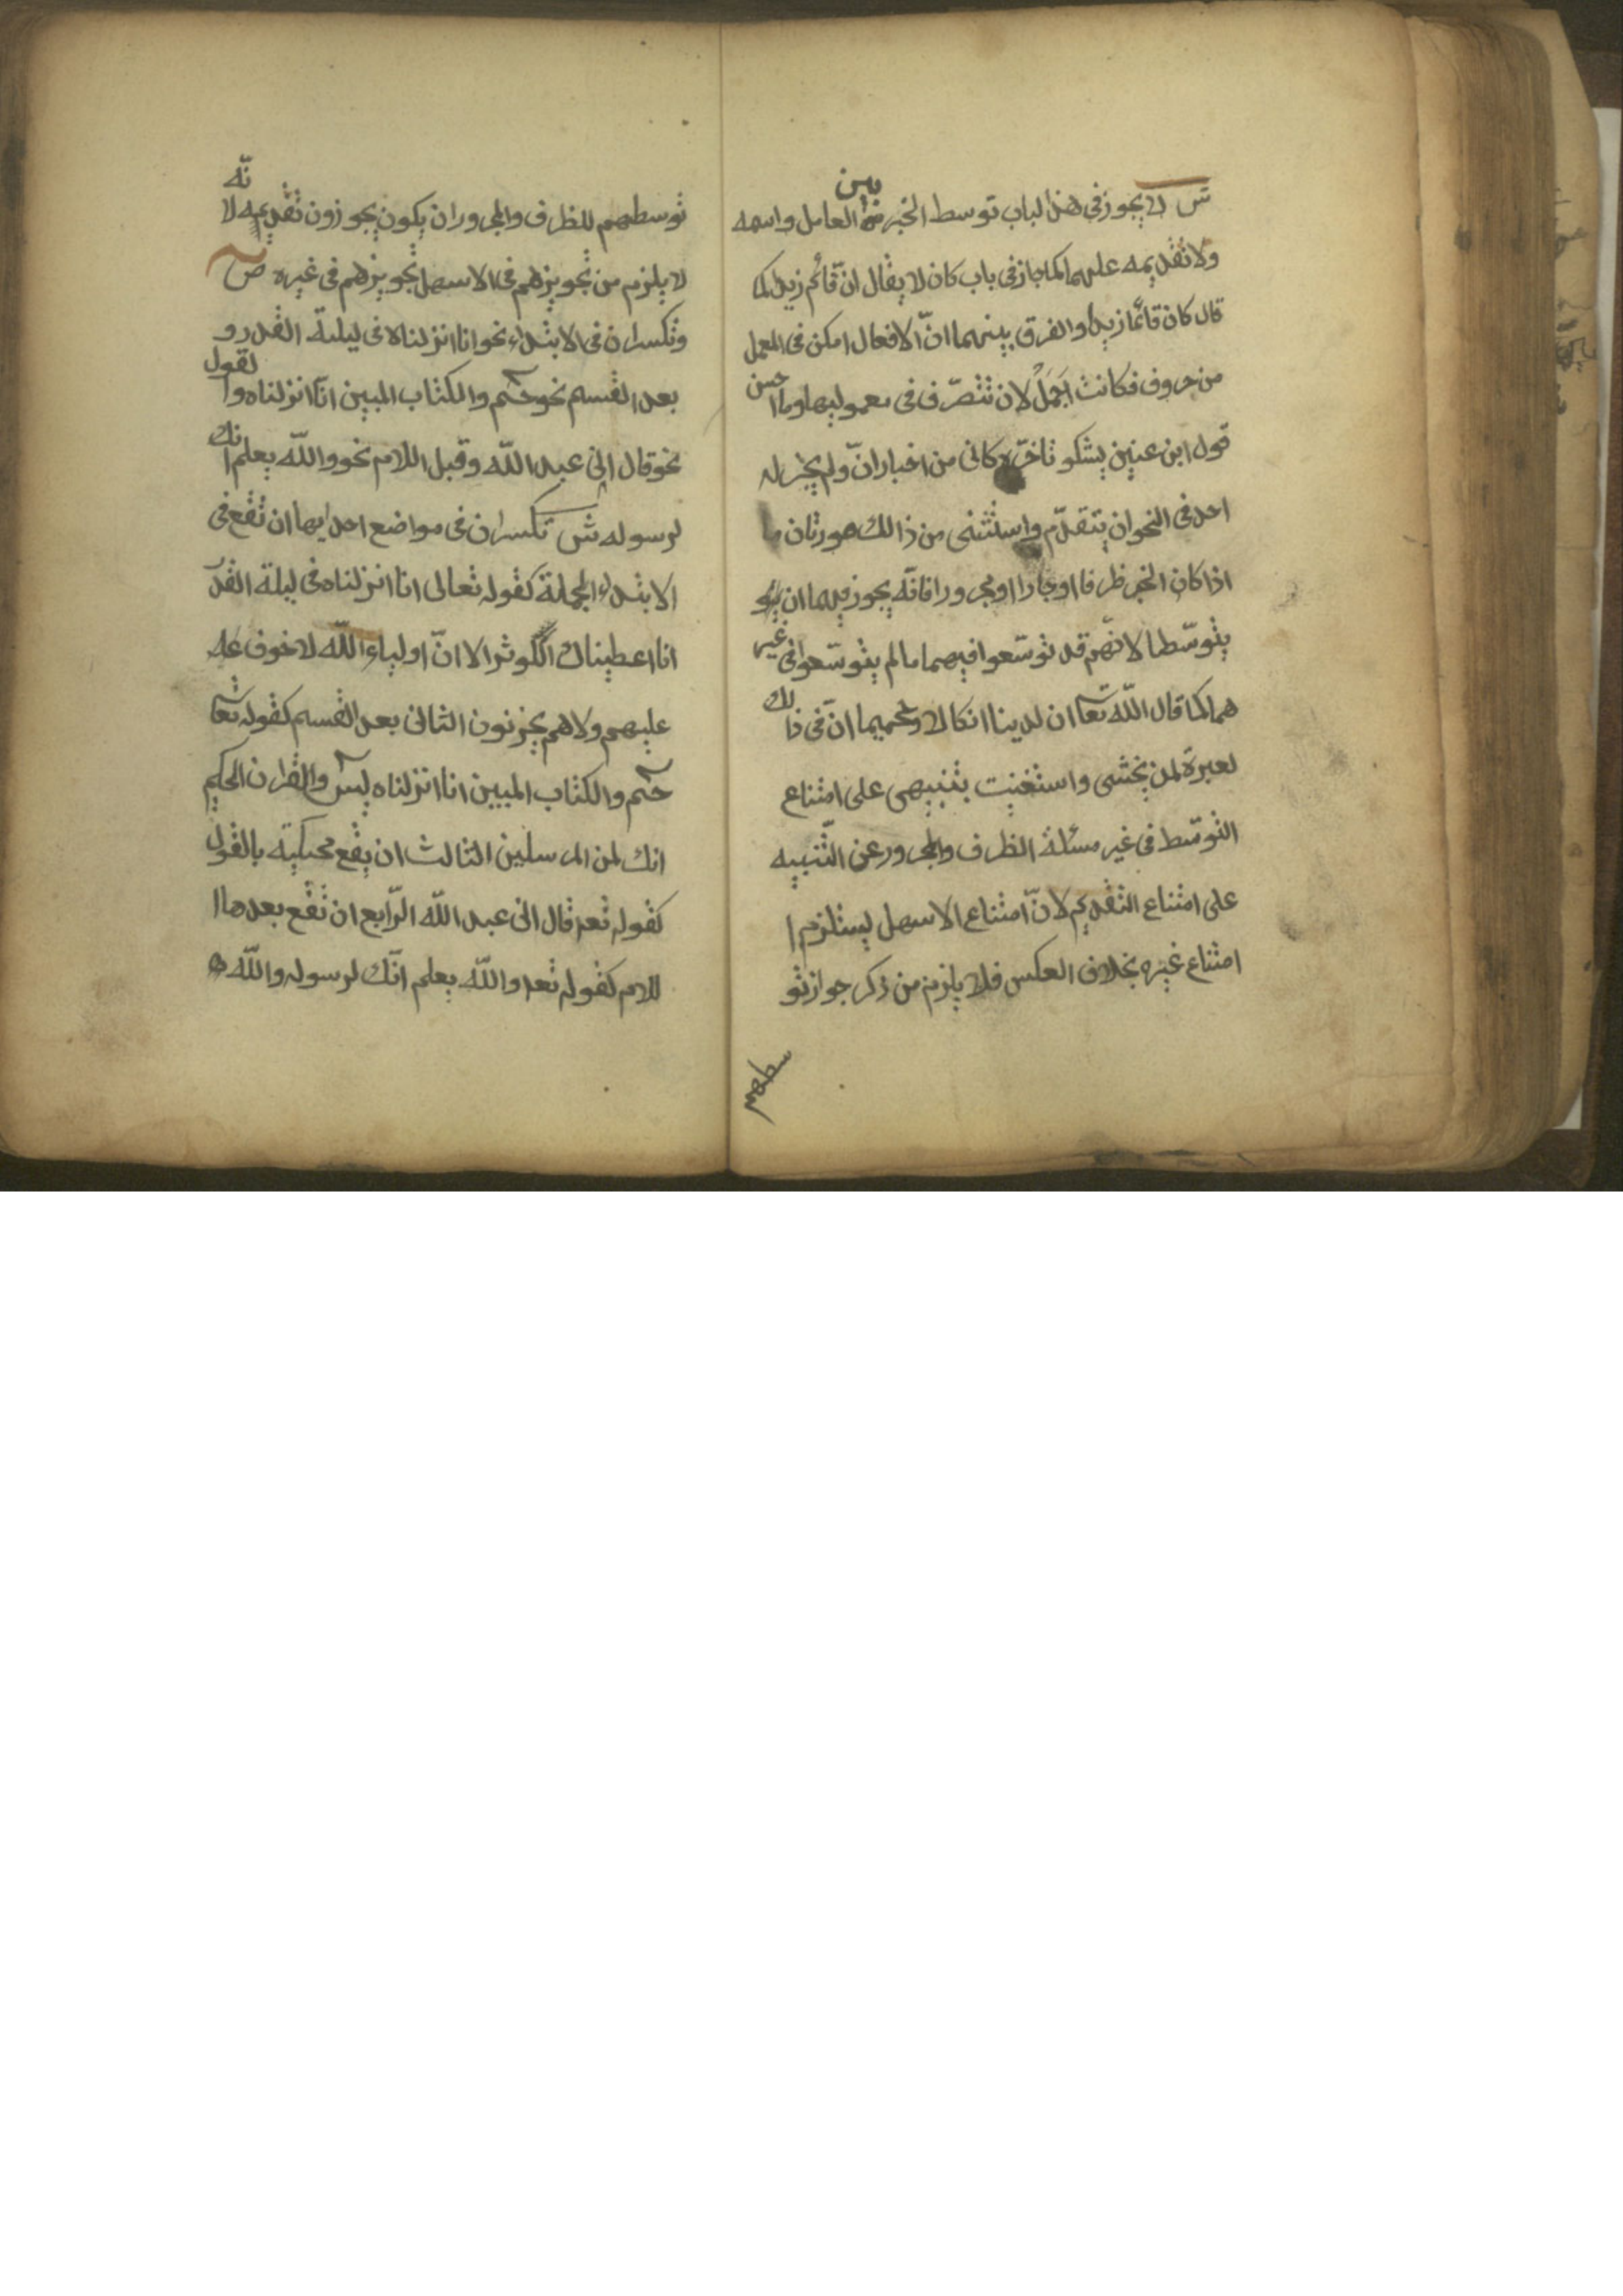 ش لا يجوز فى هذا لباب توسط الخبر بين العامل واسمه
ولا تقديمه عليهما كما جاز فى باب كان لا يقال انّ قائم زيدا كما
قال كان قائما زيدا والفرق بينهما انّ الافعال امكن فى العمل
من حروف فكانت اَجَمَلْ لان تتصرّف فى معموليها وما احسن
قول ابن عنين يشكو تاخّره كانى من اخبار انّ ولم يجز له
احد فى النحو ان يتقدّم واستثنى من ذالك صورتان ما
اذا كان الخبر ظرفا او جارا او مجرورا فانّه يجوز فيهما ان
يتوسّطا لانّهم قد توسّعوا فيهما ما لم يتوسّعوا فى غير
هما كما قال اللّه تعا ان لدينا انكالا وجحيما انّ فى ذالك
لعبرة لمن يخشى واستغنيت بتنبيهى على امتناع
التوسّط فى غير مسئلة الظرف والمجرور عن التّنبيه
على امتناع التقديم لانّ امتناع الاسهل يستلزم ا
امتناع غيره بخلاف العكس فلا يلزم من ذكر جواز تو
سطهم
توسطهم للظرف والمجرور ان يكون يجوزون تقديمه لانّه
لا يلزم من تجويزهم فى الاسهل تجويزهم فى غيره ص
وتكسران فى الابتداء نحو انا انزلناه فى ليلة القدر و
بعد القسم نحو حم والكتاب المبين انّا انزلناه والقول
نحو قال انى عبد اللّه وقبل اللام نحو واللّه يعلم انك
لرسوله ش تكسران فى مواضع احدايها ان تقع فى
الابتداء الجملة كقوله تعالى انا انزلناه فى ليلة القدر
انا اعطيناك الكوثر الا انّ اولياء اللّه لا خوف عله
عليهم ولا هم يحزنون الثانى بعد القسم كقوله تعا
حم والكتاب المبين انا انزلناه يس والقران الحكيم
انك لمن المرسلين الثالث ان يقع محكيّة بالقول
كقوله تعد قال انى عبد اللّه الرّابع ان تقع بعدها ا
للام كقوله تعد واللّه يعلم انّك لرسوله واللّه